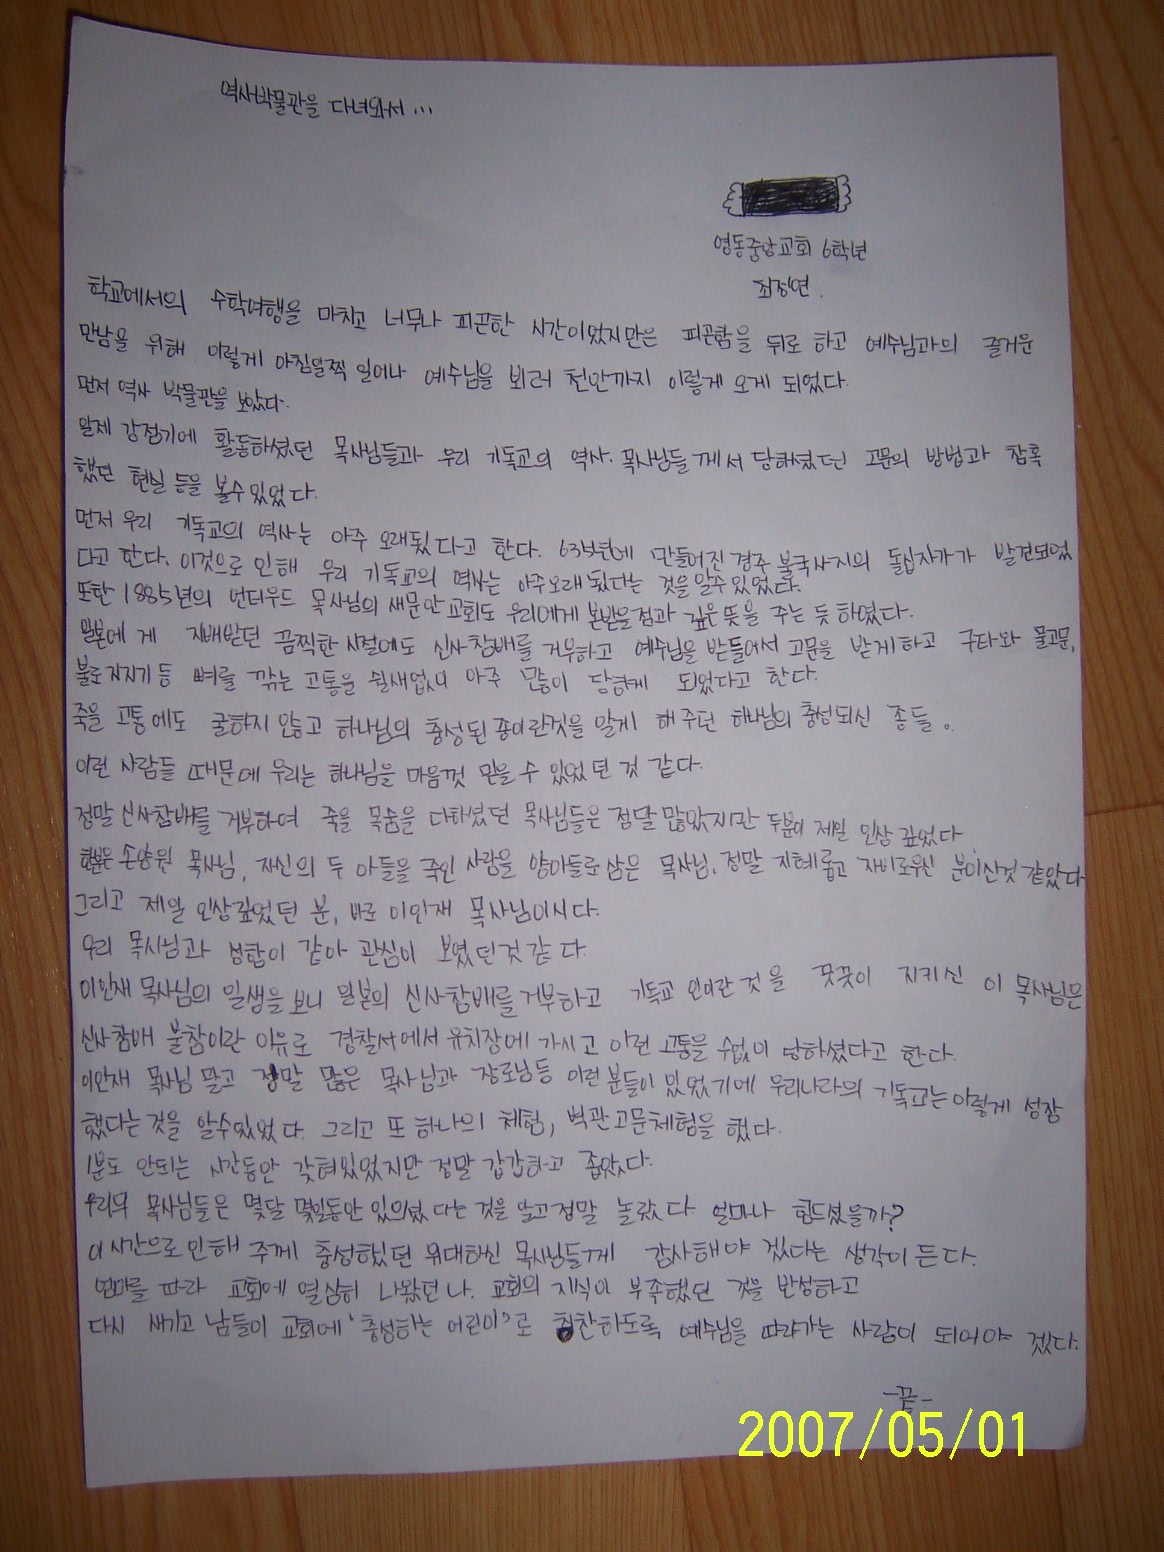 역사박물관을 다녀와서...
영동중앙교회 6학년
최정연.
학교에서의 수학여행을 마치고 너무나 피곤한 시간이었지만은 피곤함을 뒤로 하고 예수님과의 즐거운
만남을 위해 이렇게 아침일찍 일어나 예수님을 뵈러 천안까지 이렇게 오게 되었다.
먼저 역사 박물관을 보았다.
일제 강점기에 활동하셨던 목사님들과 우리 기독교의 역사. 목사님들께서 당하셨던 고문의 방법과 참혹
했던 현실 등을 볼수있었다.
먼저 우리 기독교의 역사는 아주 오래됬다고 한다. 635년에 만들어진 경주 북국사지의 돌십자가가 발견되었
다고 한다. 이것으로 인해 우리 기독교의 역사는 아주오래됬다는 것을 알수있었다.
또한 1885년의 언더우드 목사님의 새문안교회도 우리에게 본받을점과 깊은뜻을 주는듯하였다.
일본에게 지배받던 끔찍한 시절에도 신사참배를 거부하고 예수님을 받들어서 고문을 받게하고 구타와 물고문,
불로지지기 등 뼈를 깎는 고통을 쉴새없이 아주 많이 당하게 되었다고 한다.
죽을 고통에도 굴하지 않고 하나님의 충성된 종이란것을 알게 해 주던 하나님의 충성되신 종들.
이런 사람들 때문에 우리는 하나님을 마음껏 믿을 수 있었던 것 같다.
정말 신사참배를 거부하여 죽을 목숨을 다하셨던 목사님들은 정말 많았지만 두분이 제일 인상 깊었다.
한분은 손양원 목사님, 자신의 두 아들을 죽인 사람을 양아들로 삼은 목사님. 정말 지혜롭고 자비로우신 분이신것 같았다
그리고 제일 인상깊었던 분, 바로 이인재 목사님이시다.
우리 목사님과 성함이 같아 관심이 보였던것 같다.
이인재 목사님의 일생을 보니 일본의 신사참배를 거부하고 기독교 인이란 것을 꿋꿋이 지키신 이 목사님은
신사참배 불참이란 이유로 경찰서에서 유치장에 가시고 이런 고통을 수없이 당하셨다고 한다.
이인재 목사님 말고 정말 많은 목사님과 장로님등 이런 분들이 있었기에 우리나라의 기독교는이렇게 성장
했다는 것을 알수있었다. 그리고 또 하나의 체험, 벽관고문체험을 했다.
1분도 안되는 시간동안 갖혀있었지만 정말 갑갑하고 좁았다.
우리의 목사님들은 몇달 몇일동안 있으셨다는 것을 알고 정말 놀랐다. 얼마나 힘드셨을까?
이 시간으로 인해 주께 충성했던 위대하신 목사님들께 감사해야 겠다는 생각이 든다.
엄마를 따라 교회에 열심히 나왔던 나. 교회의 지식이 부족했던 것을 반성하고
다시 새기고 남들이 교회에 '충성하는 어린이'로 칭찬하도록 예수님을 따라가는 사람이 되어야 겠다.
-끝-
2007/05/01